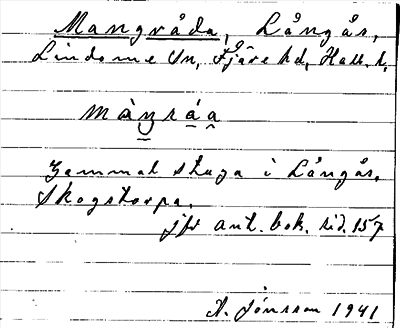 Mangråda, Långås,
Lindome sn, Fjäre hd, Hall. l.
màŋráa
Gammal stuga i Långås,
Skogstorpa.
jfr ant. bok. sid. 157
A. Jönsson 1941